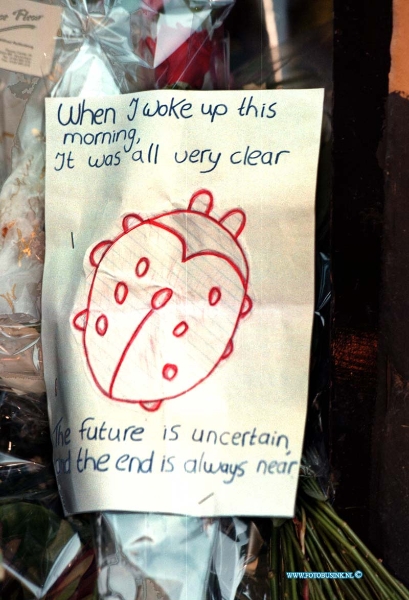 When I woke up this
morning,
It was all very clear
The future is uncertain,
and the end is always near
WWW.FOTOBUSINK.NL©